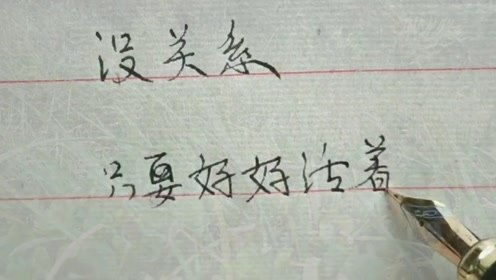 没关系
只要好好活着